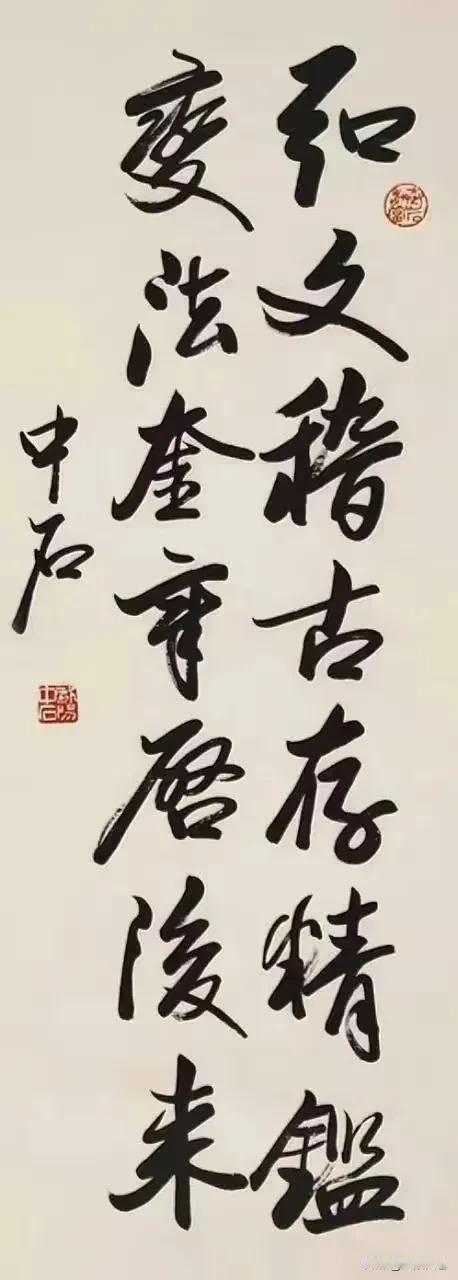 弘文稽古存精鑑
變法奎章啓後来
中石